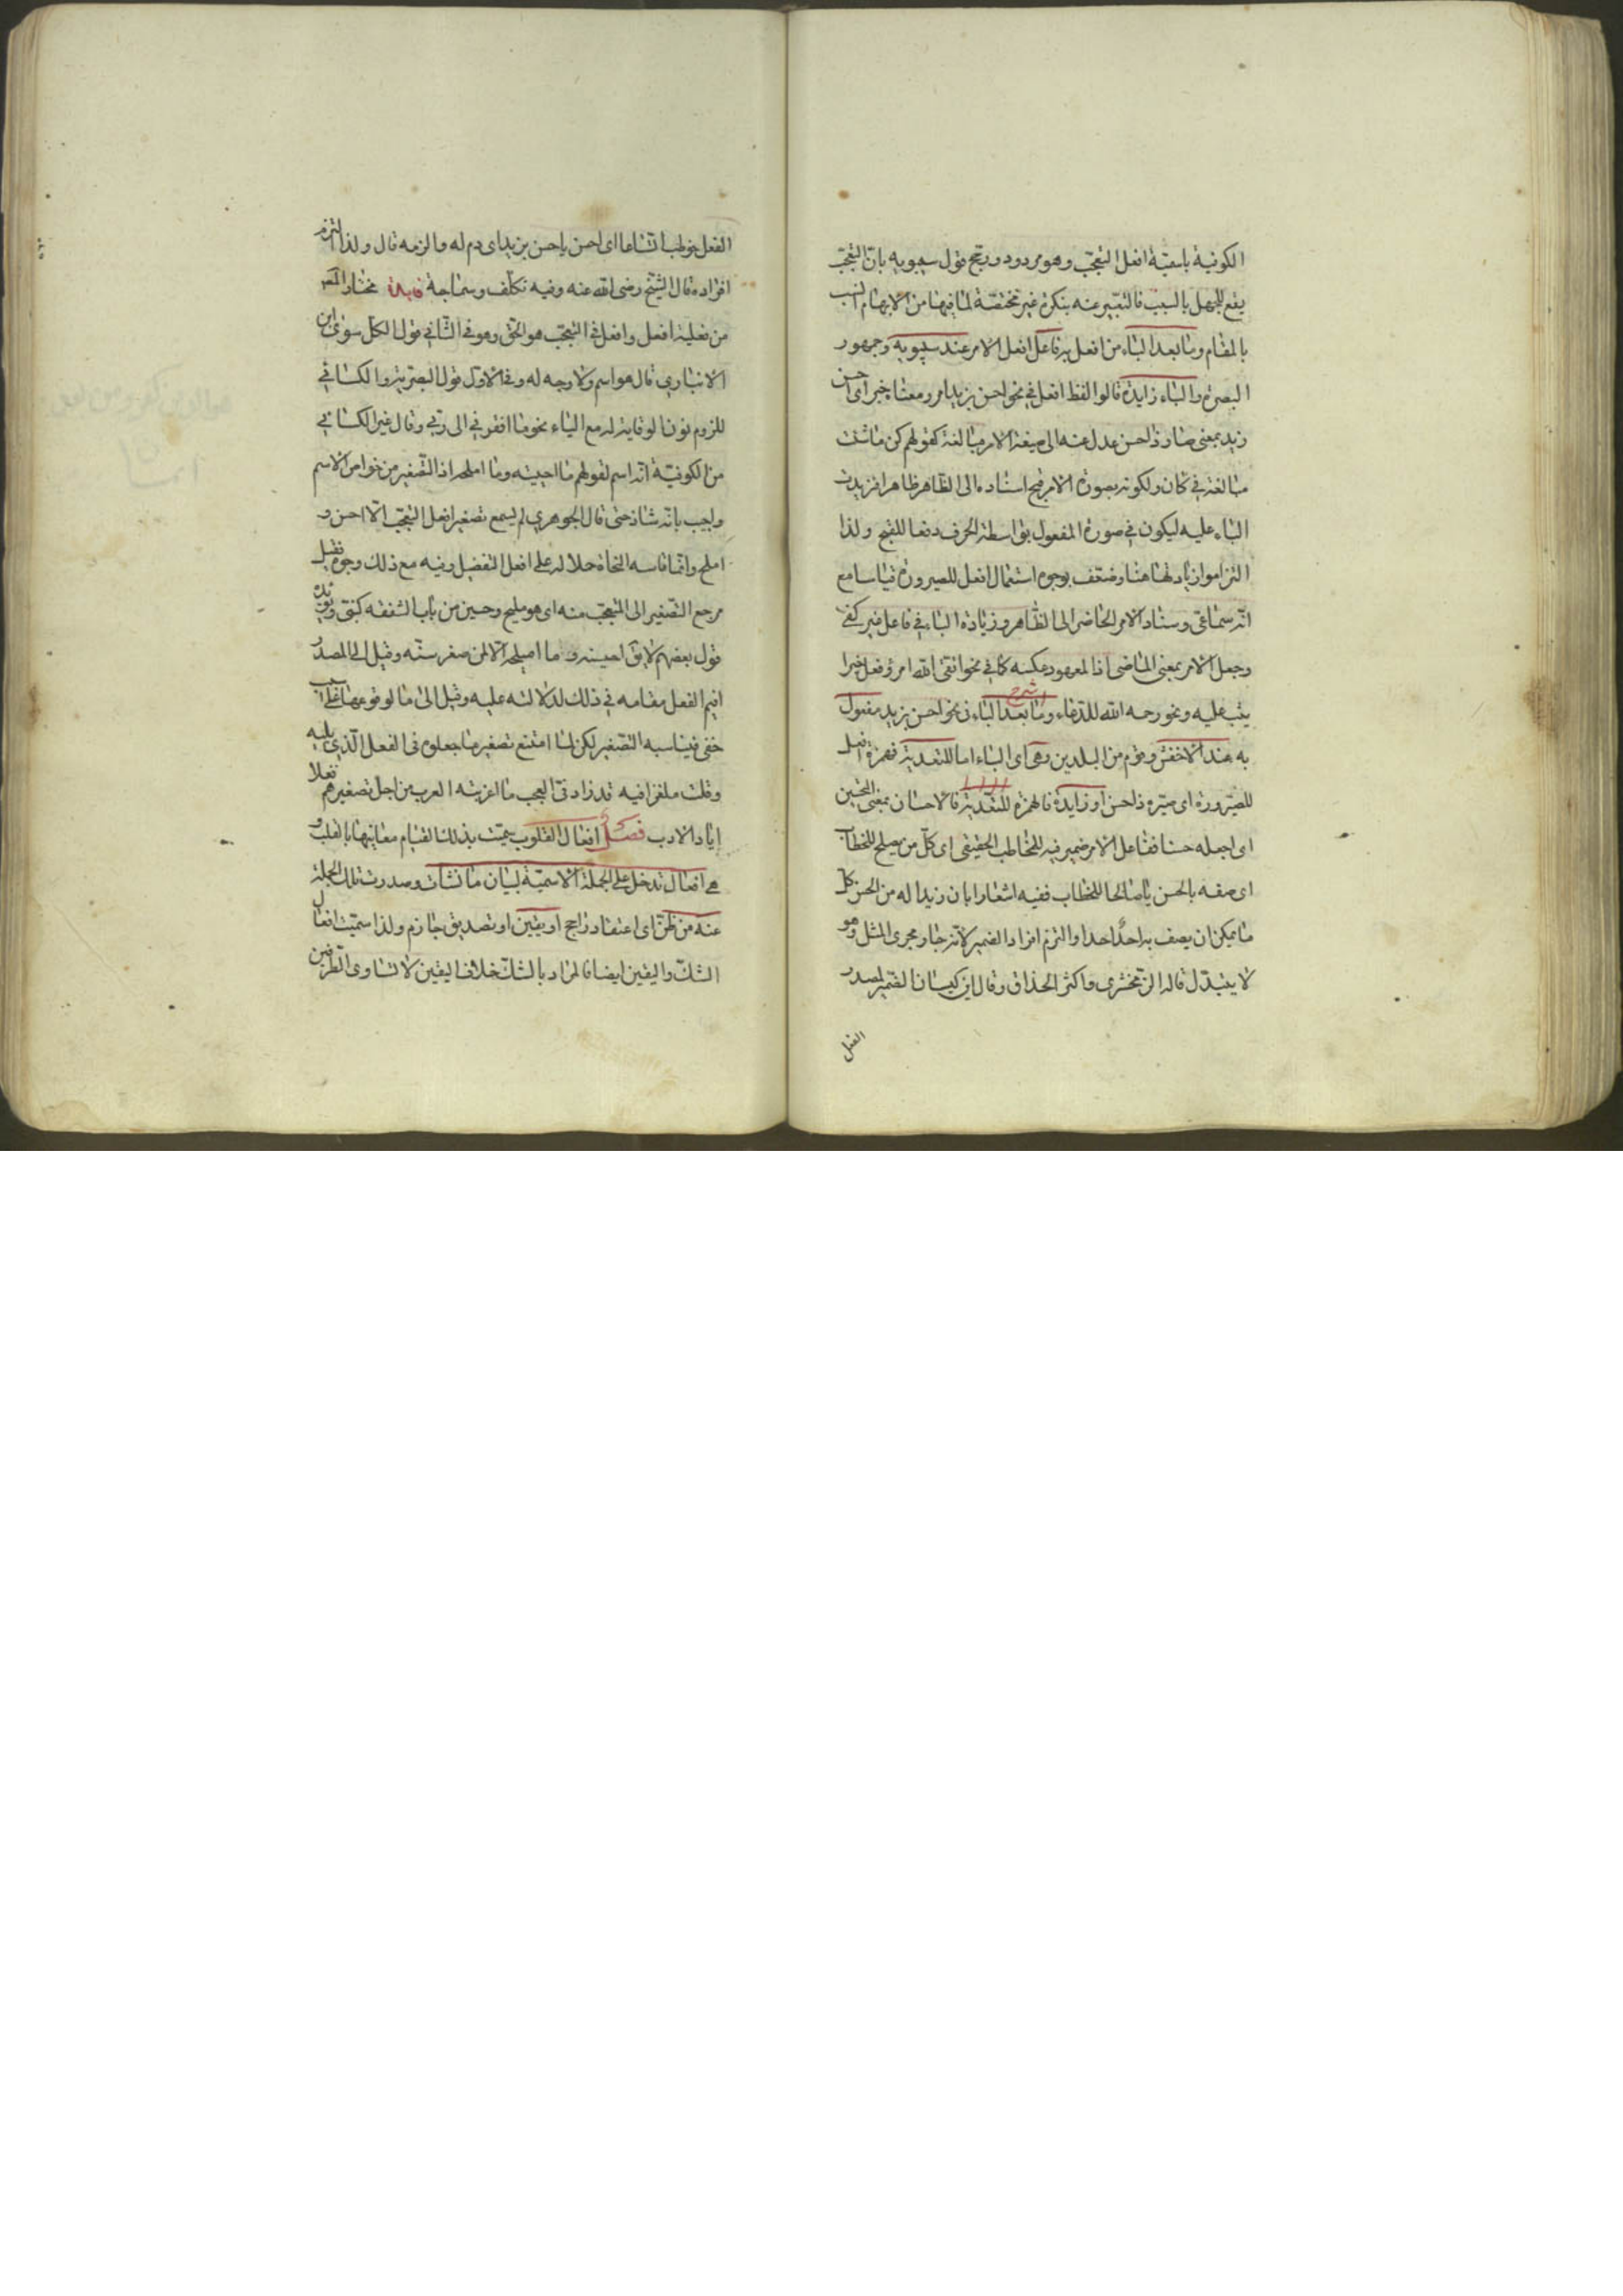 الكوفية باسميّة افعل التعجّب وهو مردود ورجّح قول سيبويه بانّ التعجّب
يقع للجهل بالسبب فالتعبير عنه بنكرة غير مختصّة لما فيها من الابهام انسب
بالمقام وما بعد الباء من افعل به فاعل افعل الامر عند سيبويه وجمهور
البصرة والباء زايدة قالوا لفظ افعل في نحو احسن بزيد امر ومعناه خبر اى احسن
زيد بمعنى صار ذا حسن عدل عنه الى صيغة الامر مبالغة كقولهم كن ما شئت
مبالغة في كان ولكونه بصورة الامر قبح اسناده الى الظاهر ظاهرا فزيدت
الباء عليه ليكون في صورة المفعول بواسطة الحرف دفعا للقبح ولذا
التزموا زيادتها هنا وضعّف بوجوه استعمال افعل للصيرورة قياسا مع
انّه سماعيّ وسناد الامر الحاضر الى الظاهر وزيادة الباء في فاعل غير كفى
وجعل الامر بمعنى الماضى اذ المعهود عكسه كما في نحو اتقى الله امرؤ فعل خيرا
يثب عليه ونحو رحمه الله للدّعاء وما بعد الباء في نحو احسن بزيد مفعول
شرح
به عند الاخفش وقوم من البلدين وهى اى الباء اما للتعدية فهمزة افعل
للصيرورة اى صيّره ذا حسن او زايدة فالهمزة للتعدية فالاحسان بمعنى التحسين
اى اجعله حسنا ففاعل الامر ضمير فيه للمخاطب الحقيقى اى كلّ من يصلح للخطاب
اى صفه بالحسن يا صالحا للخطاب ففيه اشعار ابان زيدا له من الحسن كل
ما يمكن ان يصف به احدٌ احدا والتزم افراد الضمير لانّه جار مجرى المثل وهو
لا يتبدّل قاله الزّمخشرى واكثر الحذاق وقال ابن كيسان الضمير لمصدر
الفعل
الفعل خوطب اتساعا اى احسن يا حسن بزيد اى دم له والزمه قال ولذا التزم
افراده قال الشيخ رضى الله عنه وفيه تكلّف وسماجة فايدة مختار المص
من فعلية افعل وافعل في التعجّب هو الحق وهو في الثّاني قول الكل سوى ابن
الانباري قال هو اسم ولا وجه له وفى الاوّل قول البصريّة والكسائي
للزوم نون الوقاية له مع الياء نحو ما افقرني الى ربّي وقال غير الكسائي
من الكوفيّة انّه اسم لقولهم ما احيسنه وما اميلحه اذ التّصغير من خواص الاسم
واجيب بانّه شاذ حتى قال الجوهري لم يسمع تصغير افعل التعجّب الّا احسن و
املح وانّما قاسه النحاة حملا له على افعل التفضيل وفيه مع ذلك وجوه فقيل
مرجع التّصغير الى المتعجّب منه اى هو مليح وحسين من باب الشفقة كبنىّ ويؤيده
قول بعضهم لا يق احيسنه وما اميلحه الّا لمن صغر سنّه وقيل الى المصدر
اقيم الفعل مقامه في ذلك لدلالته عليه وقيل الى ما لوقوعها على سبب
خفى فيناسبه التّصغير لكن لمّا امتنع تصغير ما جعلوه فى الفعل الّذي يليه
وقلت ملغزا فيه قد زادني العجب ما اغربته العرب من اجل تصغيرهم فعلا
ايا ذا الادب فصل افعال القلوب سمّيت بذلك لقيام معانيها بالقلب و
هى افعال تدخل على الجملة الاسميّة لبيان ما نشأت وصدرت تلك الجملة
عنه من ظنّ اى اعتقاد راجح او يقين او تصديق جازم ولذا سميّت افعال
الشكّ واليقين ايضا فالمراد بالشكّ خلاف اليقين لا تساوى الطّرفين